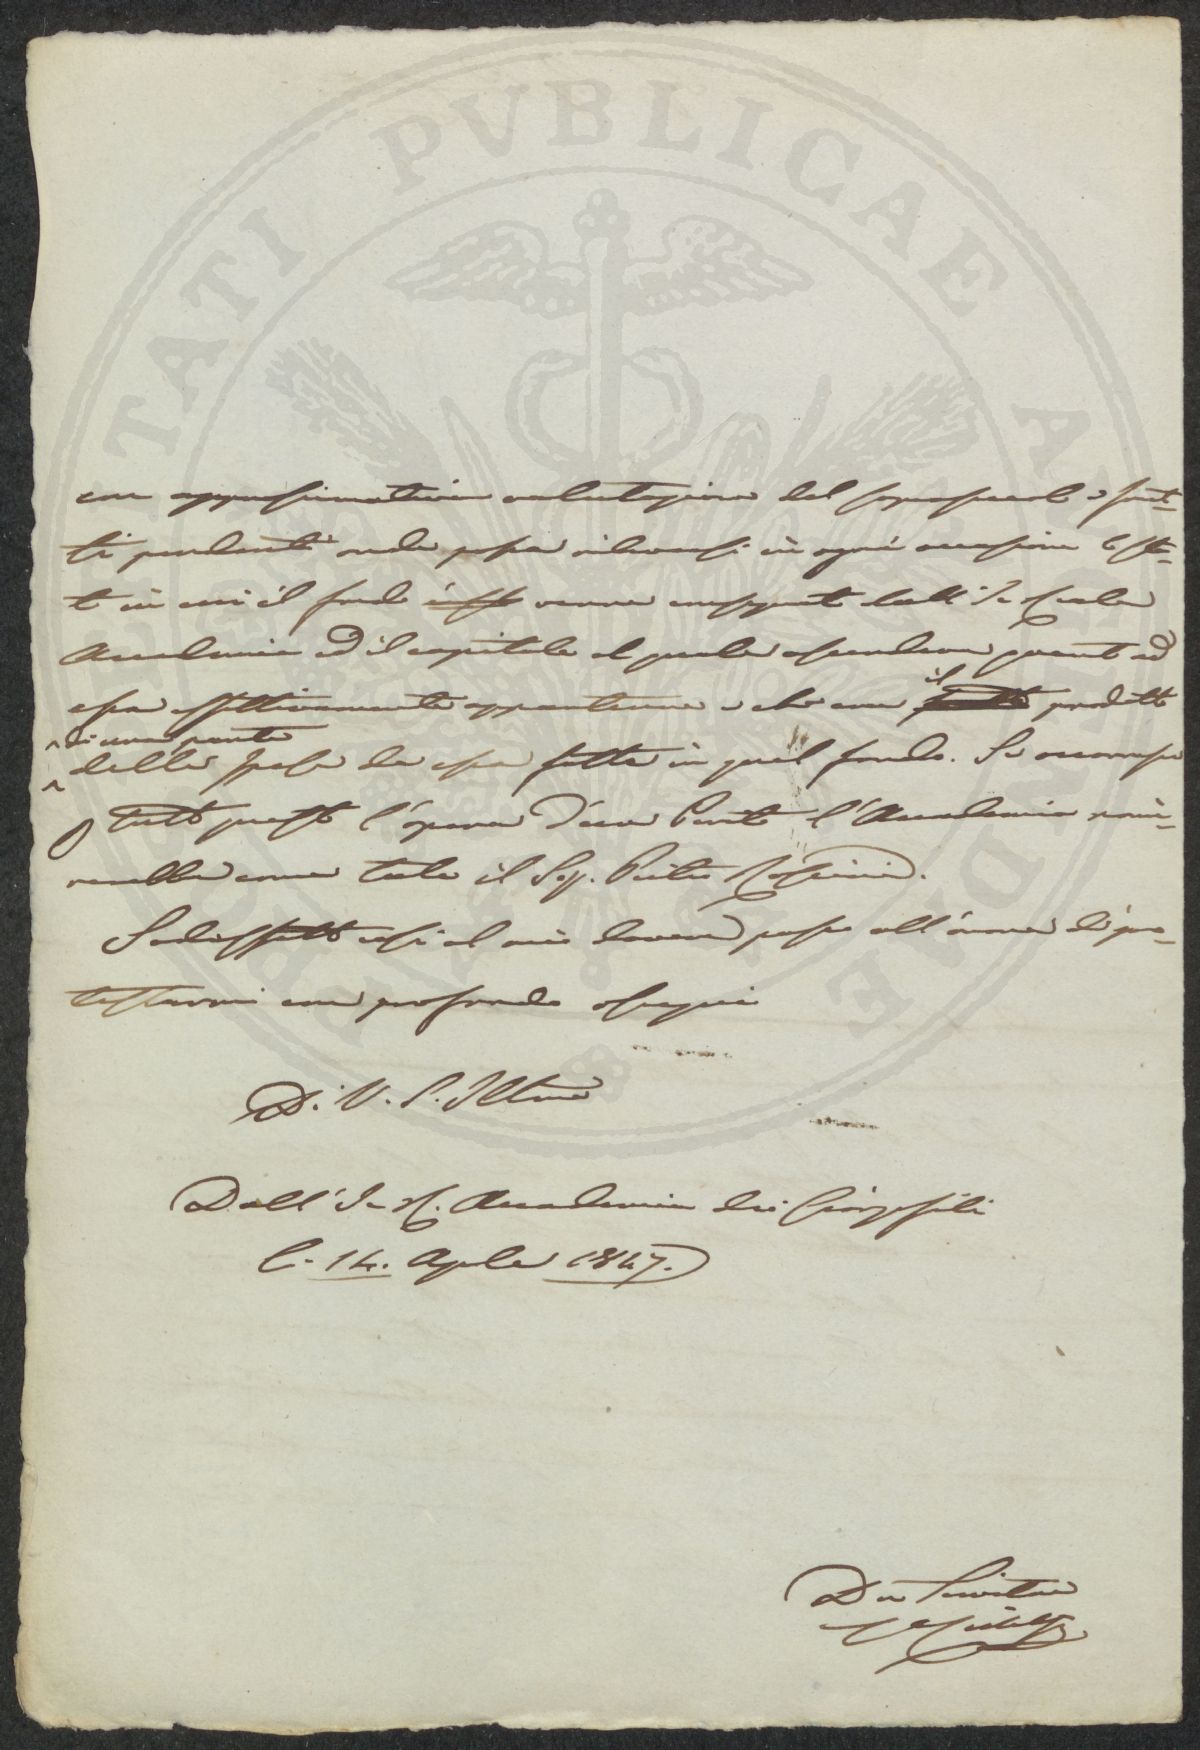 PROSPERITATI PVBLICAE AVGENDAE
con approssimativa valutazione del soprassuolo e frut-
ti pendenti onde possa rilevarsi in ogni occasione lo sta-
to in cui il fondo venne consegnato dall' I. e Reale
Accademia ed il capitale al quale ascendeva quanto ad
essa effettivamente apparteneva e che era il prodotto
di una parte
delle spese da essa fatte in quel fondo. Se occorresse
p tutto questo l'opera d'un Perito l'Accademia nomi-
nerebbe come tale il Sig. Pietro Rossini.
Sodisfatto così al mio dovere passo all'onore di pro-
testarmi con profondo ossequio
Di V. S. Illma
Dall' I. e R. Accademia dei Georgofili
L. 14. Aprile 1847.
Dev Servitore